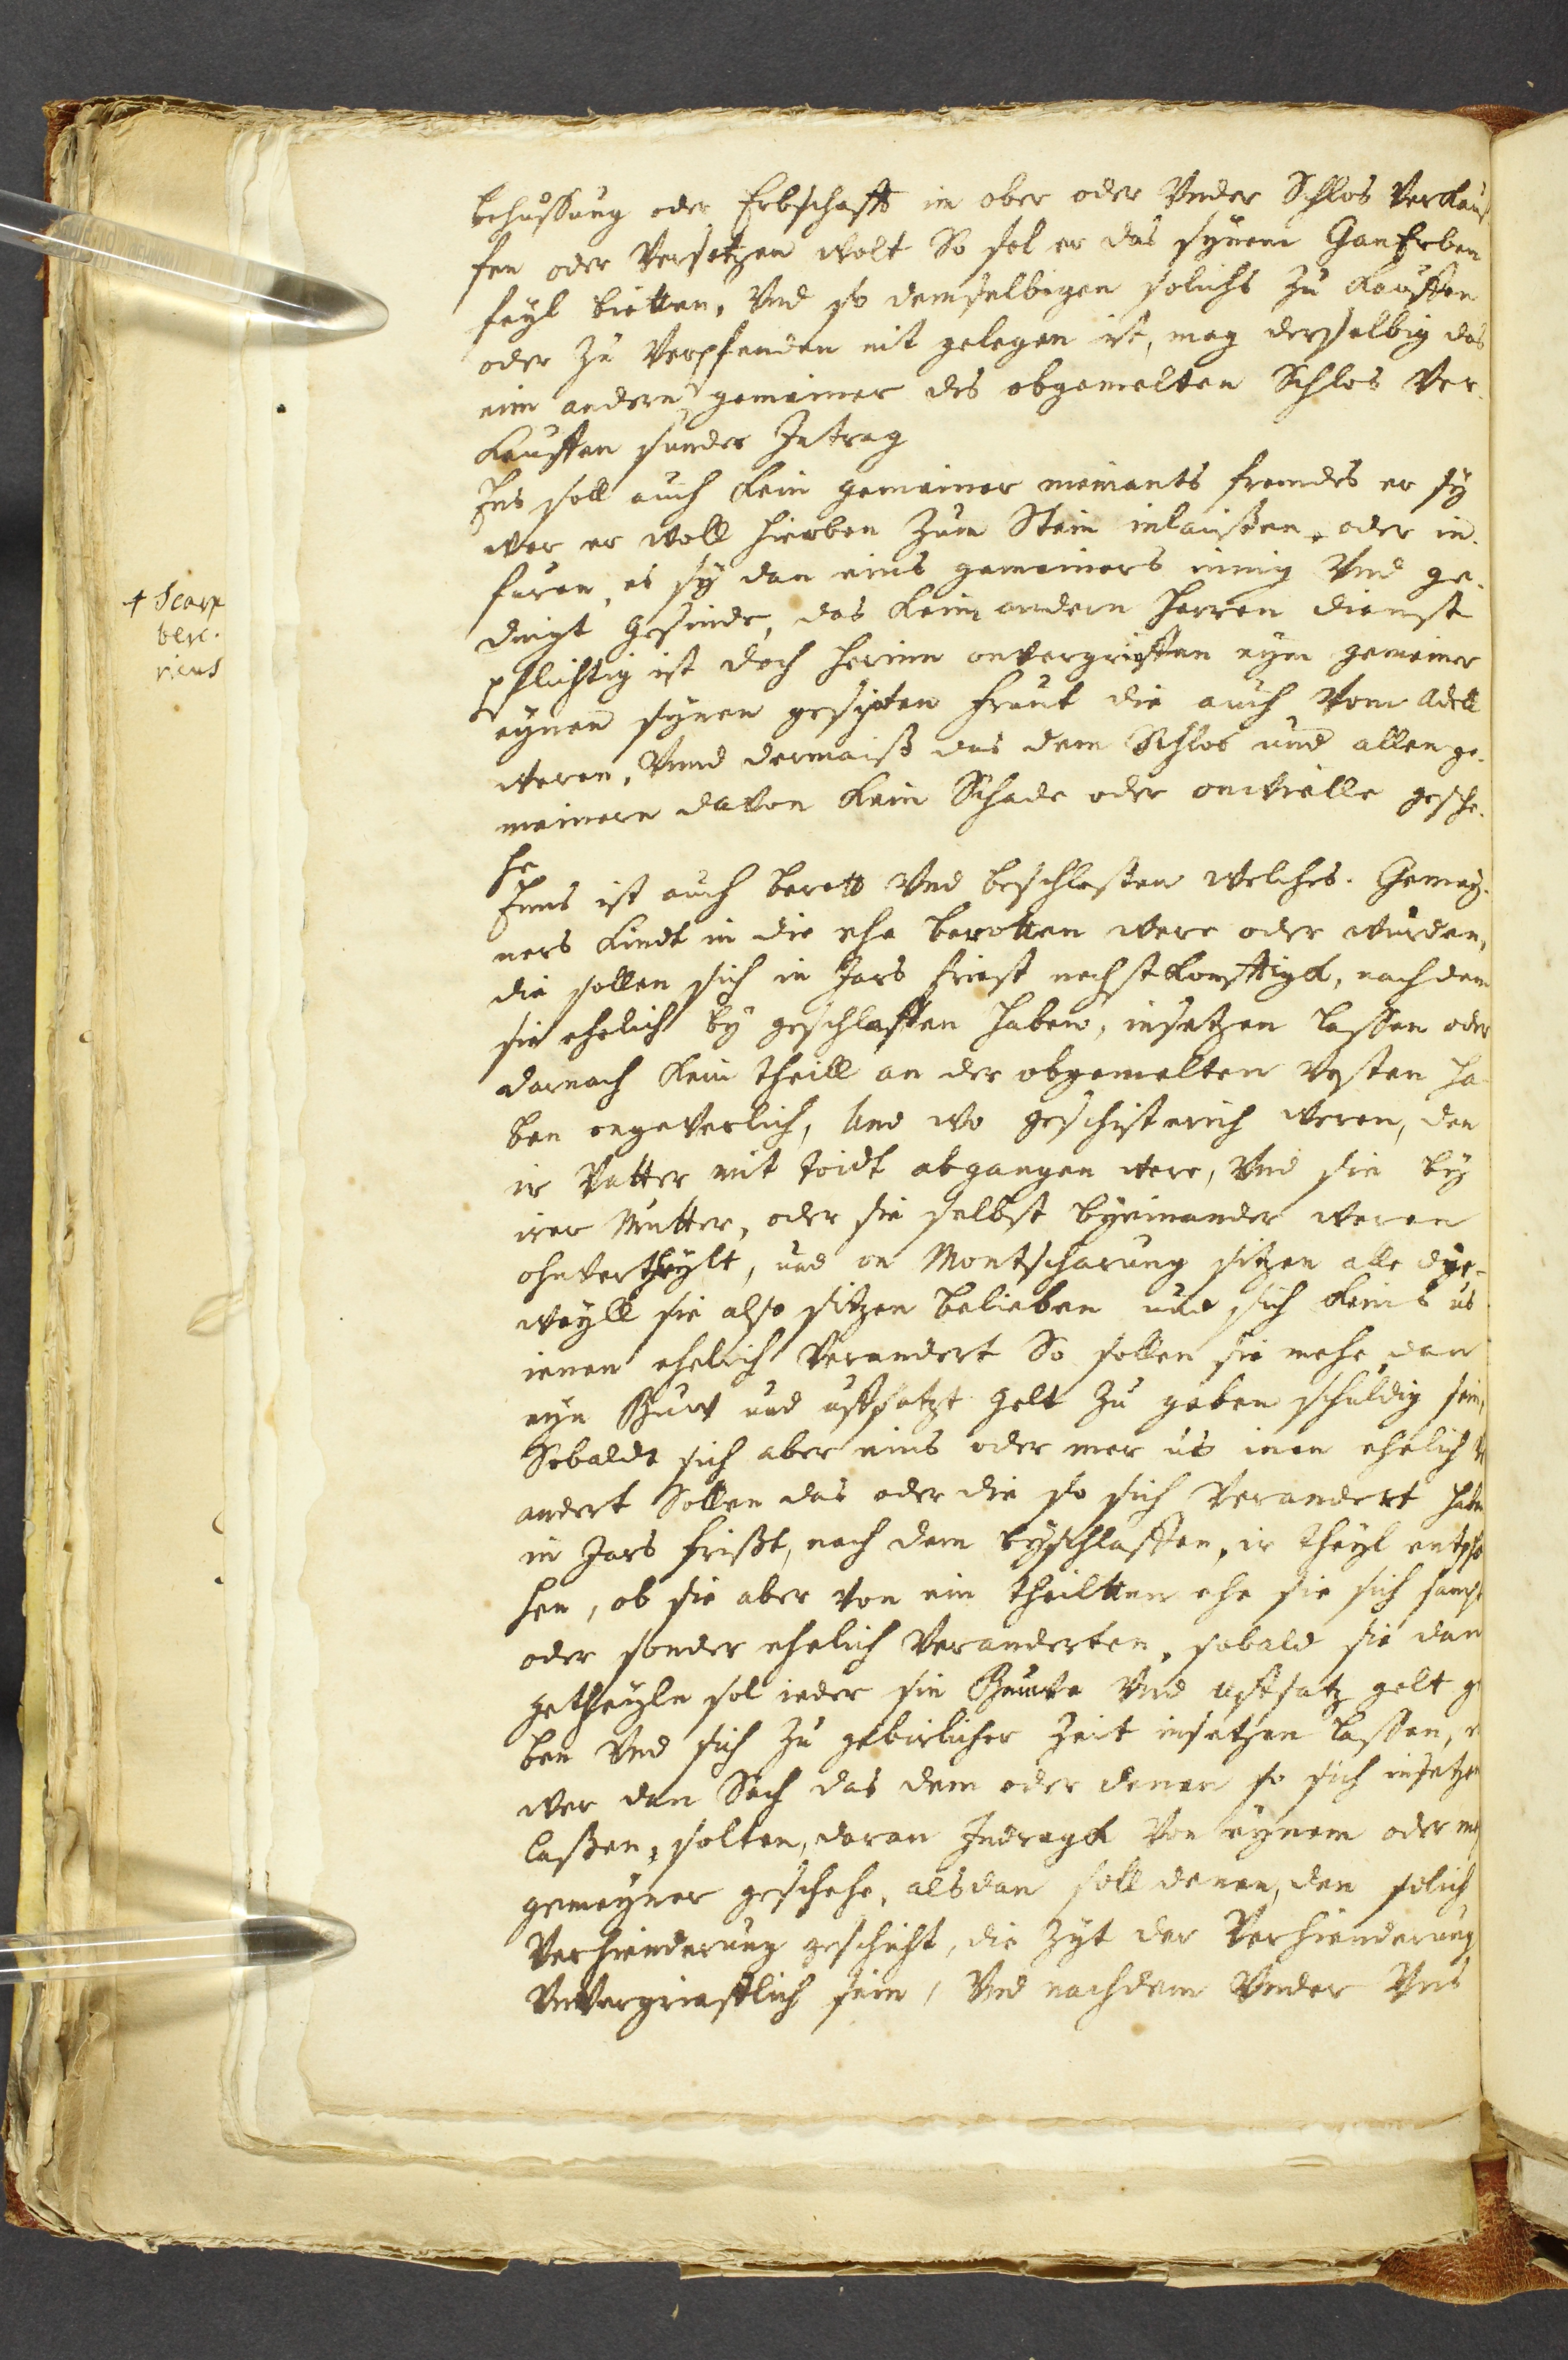 behussung oder Erbschafft in ober oder Vnder Schlos Verkauf
fen oder Versetzen wolt So sol er das synem GanErben
feyl bietten, Vnd so demselbigen solichs zu kauffen
oder zu Verpfenden nit gelegen ist, mag derselbig das
eim andern gemeiner des obgemelten Schlos Ver-
kauffen sunder Intrag
Jns soll auch kein gemeiner niemants frembds er sy
wer er woll hieoben zum Stein inlaißen, oder in-
furen, es sy dan eins gemeiners innig Vnd ge-
dingt gesinde, das keim andern Herren dienst
pflichtig ist doch herinn onvergrieffen eym gemeiner
eynen synen gesipten frunt die auch Vom Adell
weren, Vnnd dermaiß das dem Schlos und allen ge-
meinern davon kein Schade oder onwielle gesche-
he
Jnns ist auch berett Vnd beschlossen welches Gemey-
ners kindt in die ehe beratten were oder wurden,
die sollen sich in Jars friest nechstkonfftigk, nach dem
sie ehelich by geschlaffen haben, insetzen lassen oder
darnach kein theill an der obgemelten Vesten ha-
ben ongeverlich, Und wo geschisterich weren, den
ir Vatter mit toidt abgangen were, Vnd sie by
irer Mutter, oder sie selbst byeinander weren
ohnvertheylt, und on Montscharung sitzen alle dye-
weyll sie also sitzen belieben und sich keins us
ienen ehelich Verandert So sollen sie mehe dan
eyn Buw und uffsatzt gelt zu geben schuldig sein,
Sobaldt sich aber eins oder mer us inen ehelich
andert Sollen das oder die so sich Verandert haben
in Jars frißt, nach dem byschlaffen, ir theyl entpfa
hen, ob sie aber von ein theiltten ehe sie sich sampt
oder sonder ehelich Veranderten, sobald sie dan
getheyln sol ieder sin Buwe Vnd uffsatz gelt ge
ben Vnd sich zu gebirlicher Zeit insetzen lassen,
wer dan Sach das dem oder denen so sich insetzen
laßen, solten, daran Indragk Von eynem oder me
gemeyner geschehe, alsdan soll denen, den solich
Verhienderung geschicht, die Zyt der Verhienderung
Vnvergriefflich sein, Vnd nachdem Vnder Vns
+ Scarp
bere.
rieus